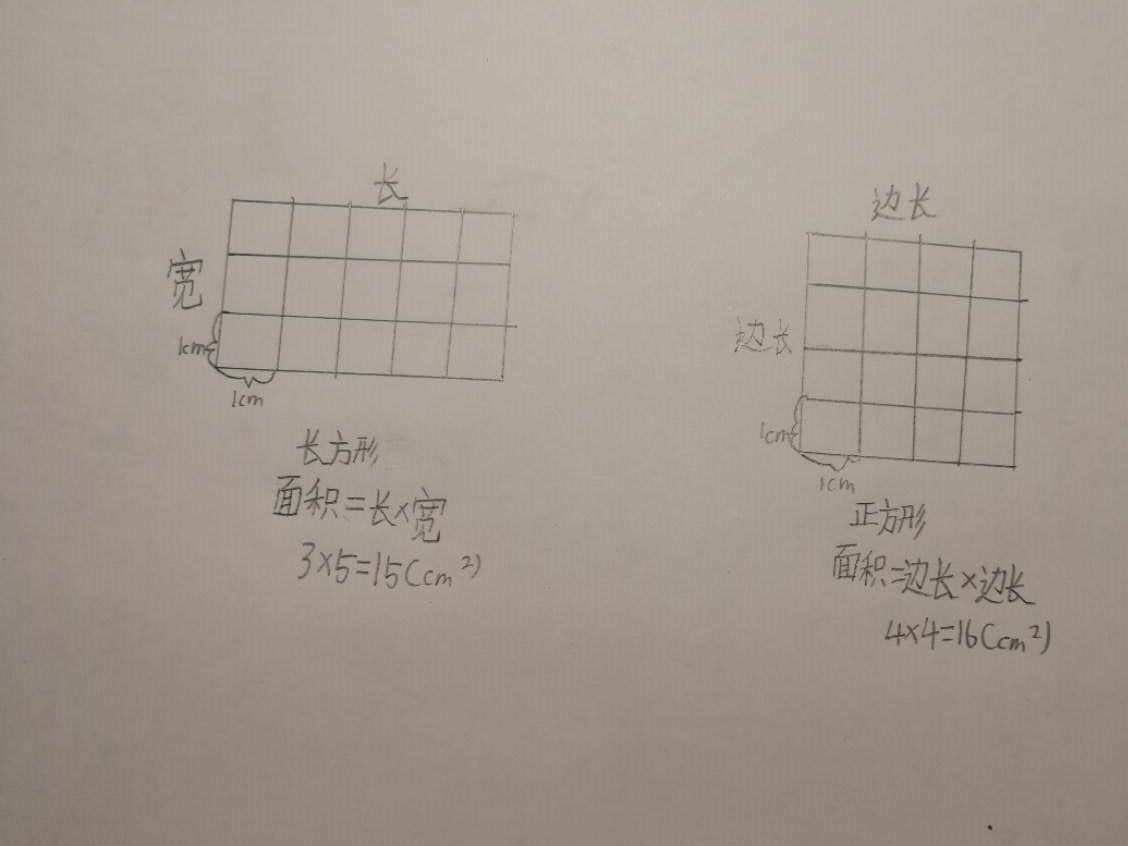 长
宽
1cm
1cm
长方形
面积=长×宽
3×5=15(cm²)
边长
边长
1cm
1cm
正方形
面积=边长×边长
4×4=16(cm²)